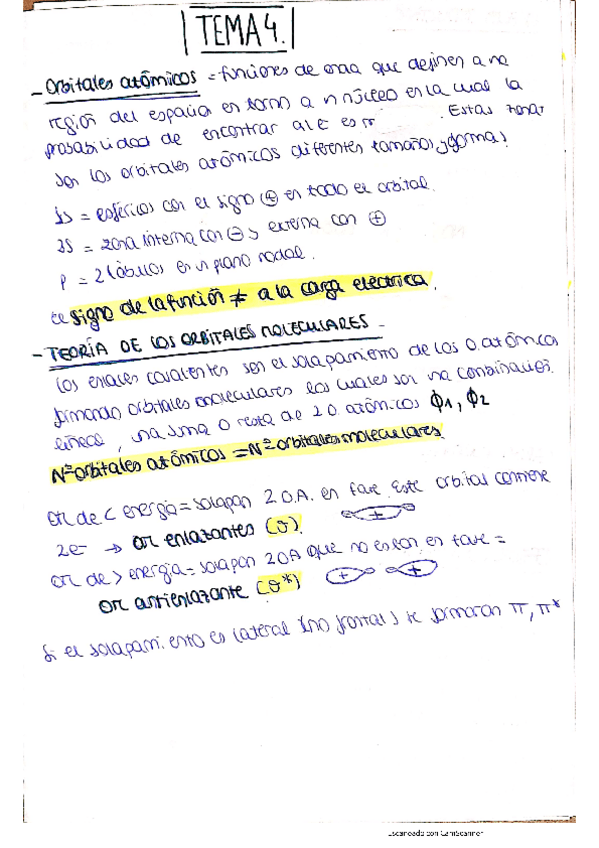 TEMA 4.
- Orbitales atómicos = funciones de onda que definen a na
región del espacio en torno a n núcleo en la cual la
probabilidad de encontrar al e⁻ es Estas zonas
son los orbitales atómicos diferentes tamaños y formas
1s = esféricos con el signo ⊕ en todo el orbital.
2S = zona interna con ⊖ y externa con ⊕
P = 2 lóbulos en n plano nodal.
ce signo de la función ≠ a la carga eléctrica.
- TEORÍA DE LOS ORBITALES MOLECULARES -
los enlaces covalentes son el solapamiento de los o. atómicos
formando orbitales moleculares los cuales son na combinación
lineal, na suma o resta de 2 o. atómicos Φ1, Φ2
Nº orbitales atómicos = Nº orbitales moleculares.
OM de < energía = solapan 2 O.A. en fase. Este orbital contiene
2e⁻ → OM enlazantes (σ).
OM de > energía = solapan 2 OA que no están en fase =
OM antienlazante (σ*)
Si el solapamiento es lateral (no frontal) se formaran π, π*
Escaneado con CamScanner